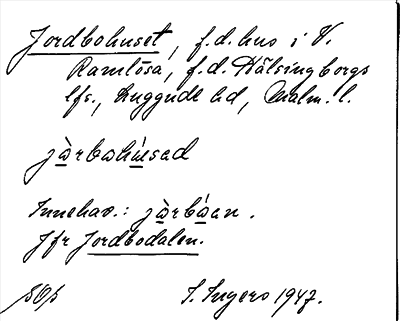 Jordbohuset, f.d. hus i V.
Ramlösa, f.d. Hälsingborgs
lfs., Luggude hd, Malm. l.
jàrbohúsad
Innehav.: jàrbóan.
Jfr Jordbodalen.
S. Ingers 1947.